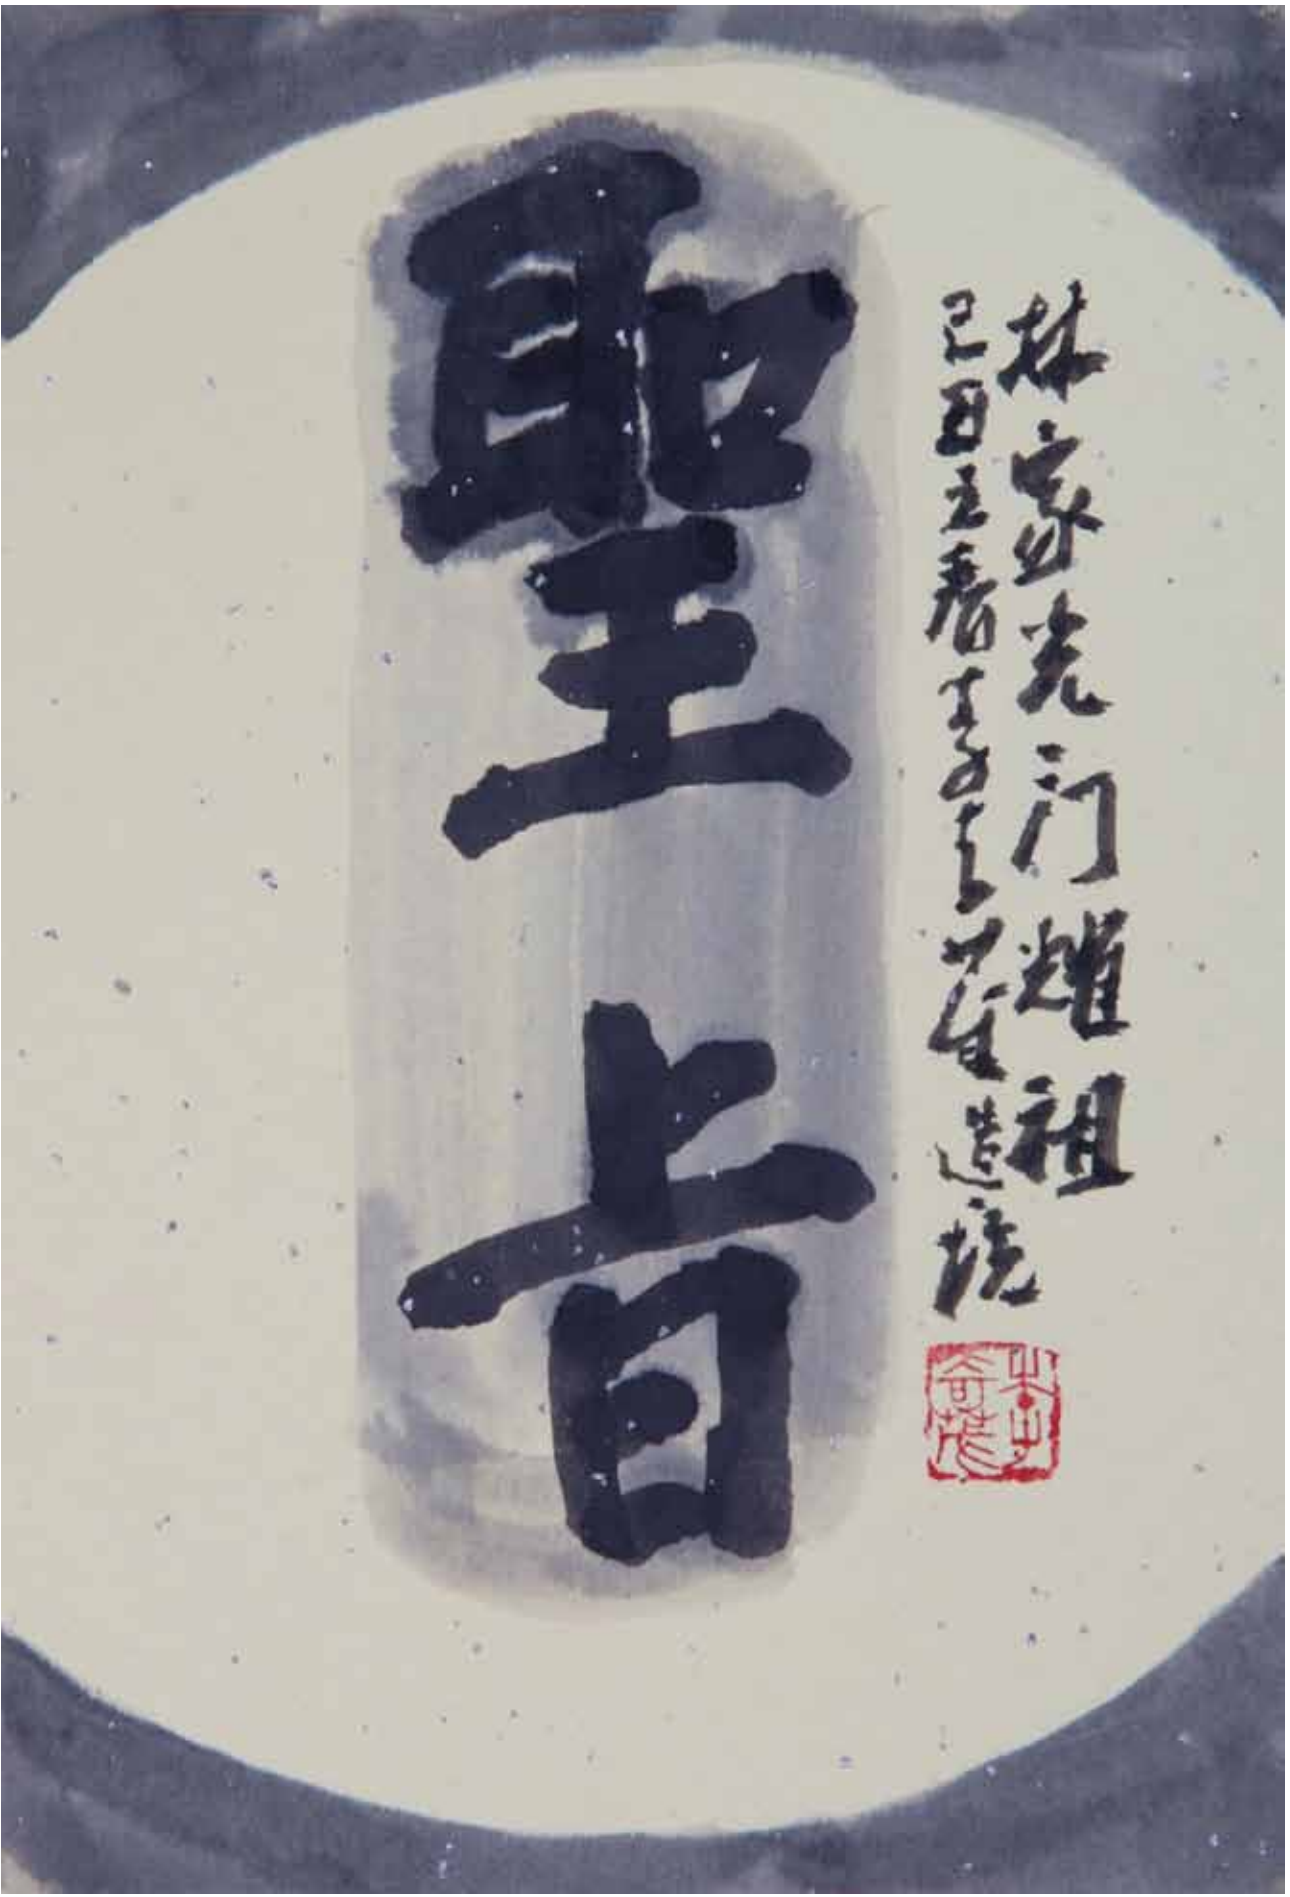 聖旨
林家光门耀祖
己丑春李造境
李奇茂